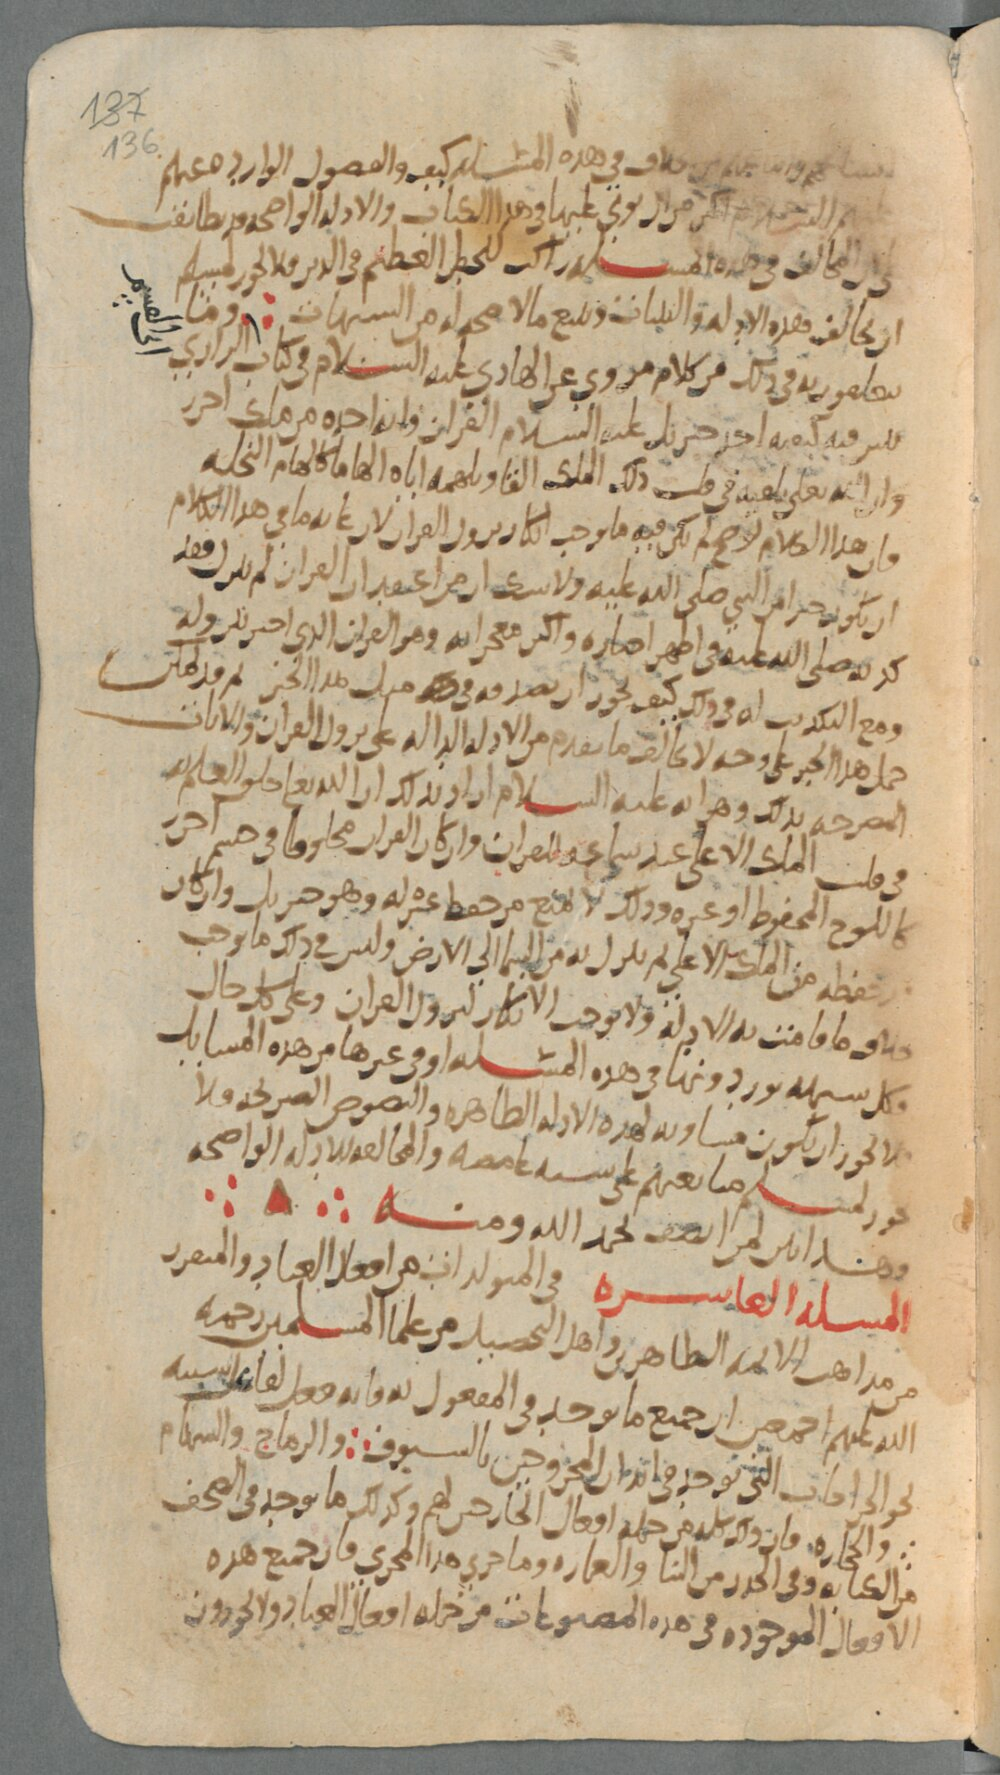 137
136
في هذه المسئله كيف والفصول الوارده عنهم
عليهم السلام اكثر من ان يوتى عليها في هذا الكتاب والادله الواضحه قد تطابقت
المخالف في هذه المسئله راكب للخطر العظيم في الدين ولا يجوز لمسلم
ان يخالف هذه الادله والبينات ويتبع ما لا صحه له من الشبهات ∴ ومما
يتعلقون به في ذلك من كلام مروي عن الهادي عليه السلام في كتاب الرازي
اى القسم
يبين فيه كيفيه اخذ جبريل عليه السلام القران وانه اخذه من ملك اخر
وان الله تعلى يلقيه في قلب ذلك الملك القا ويلهمه اياه الهاما كالهام النحله
فان هذا الكلام لو صح لم يكن فيه ما يوجب انكار نزول القران لان غايه ما في هذا الكلام
ان يكون خبرا من النبي صلى الله عليه ولا شك ان من اعتقد ان القران لم ينزل فقد
كذبه صلى الله عليه في اظهر اخباره واكبر معجزاته وهو القران الذي اخبر بنزوله
ومع التكذيب له في ذلك كيف يجوز ان يصدقه في مثل هذا الخبر ثم قد يمكن
حمل هذا الخبر على وجه لا يخالف ما تقدم من الادله الداله على نزول القران والايات
المصرحه بذلك وهو انه عليه السلام اراد بذلك ان الله تعا خلق العلم به
في قلب الملك الاعلى عند سماعه للقران وان كان القران مخلوقا في جسم اخر
كاللوح المحفوظ او غيره وذلك لا يمنع من حفظ غيره له وهو جبريل وان كان
حفظه من الملك الاعلى ثم نزل به من السما الى الارض وليس في ذلك ما يوجب
خلاف ما قامت به الادله ولا يوجب الانكار لنزول القران وعلى كل حال
فكل شبهه يوردونها في هذه المسئله او في غيرها من هذه المسايل
فلا يجوز ان تكون مساويه لهذه الادله الظاهره والنصوص الصريحه ولا
يجوز لمسلم متابعتهم على شبه غامضه والمخالفه للادله الواضحه
وهذا بين لمن انصف بحمد الله ومنه ∴ ∴
المسله العاشره في المتولدات من افعال العباد والمتقرر
من مذاهب الايمه الطاهرين واهل التحصيل من علما المسلمين رحمه
الله عليهم اجمعين ان جميع ما يوجد في المفعول به فانه فعل لفاعل سببه
نحو الجراحات التي توجد في ابدان المجروحين بالسيوف ∴ والرماح والسهام
∴ والحجاره فان ذلك كله من جمله افعال الجارحين لهم وكذلك ما يوجد في الصحف
من الكتابه وفي الجدر من البنا والعماره وما جرى هذا المجرى فان جميع هذه
الافعال الموجوده في هذه المصنوعات من جمله افعال العباد ولا يجوزون